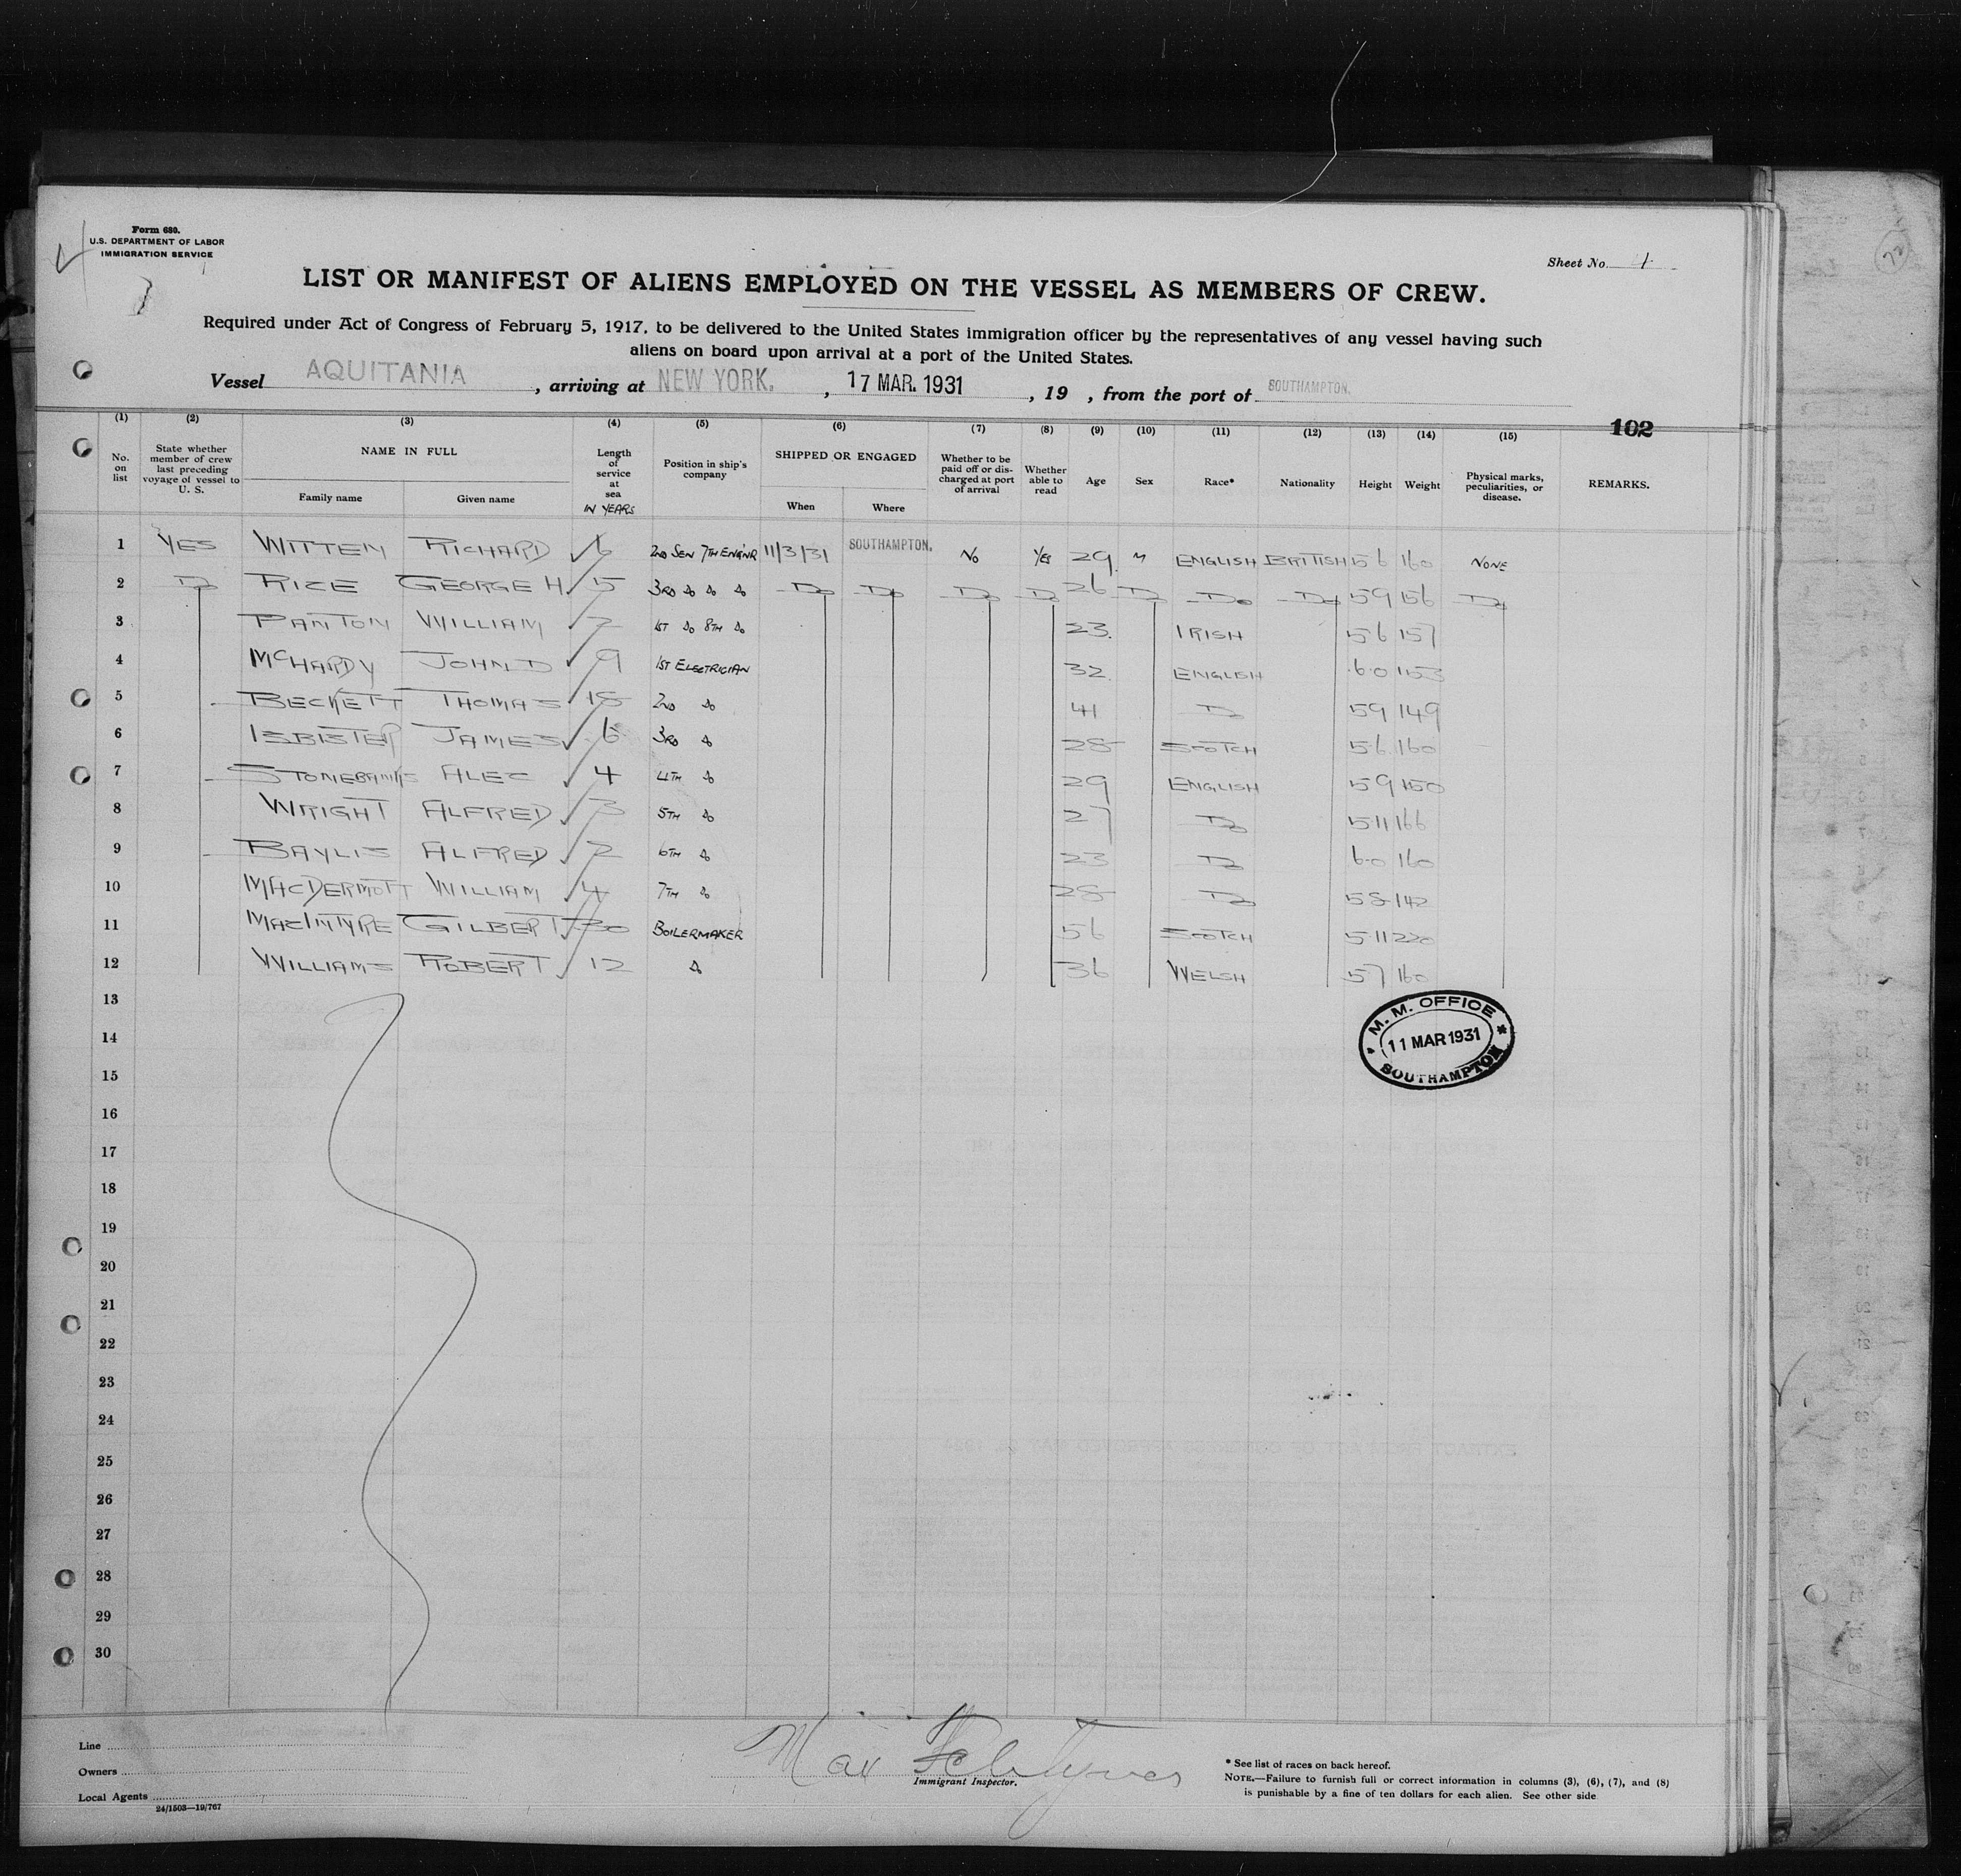 Form 680.
U.S. DEPARTMENT OF LABOR
IMMIGRATION SERVICE
Sheet No. 4
LIST OR MANIFEST OF ALIENS EMPLOYED ON THE VESSEL AS MEMBERS OF CREW.
Required under Act of Congress of February 5, 1917, to be delivered to the United States immigration officer by the representatives of any vessel having such
aliens on board upon arrival at a port of the United States.
Vessel AQUITANIA, arriving at NEW YORK., 17 MAR. 1931, 19 , from the port of SOUTHAMPTON.
102
(1) (2) (3) (4) (5) (6) (7) (8) (9) (10) (11) (12) (13) (14) (15)
No. on list
State whether member of crew last preceding voyage of vessel to U. S.
NAME IN FULL
Family name Given name
Length of service at sea IN YEARS
Position in ship's company
SHIPPED OR ENGAGED
When Where
Whether to be paid off or discharged at port of arrival
Whether able to read
Age
Sex
Race*
Nationality
Height
Weight
Physical marks, peculiarities, or disease.
REMARKS.
1 YES WITTEN RICHARD 6 2ND SEN 7TH ENGNR 11/3/31 SOUTHAMPTON. NO YES 29 M ENGLISH BRITISH 5 6 160 NONE
2 Do RICE GEORGE H 5 3RD do do do Do Do Do Do 26 Do Do Do 5 9 156 Do
3 PANTON WILLIAM 7 1ST do 8TH do 23 IRISH 5 6 157
4 McHARDY JOHN D 9 1ST ELECTRICIAN 32 ENGLISH 6 0 153
5 BECKETT THOMAS 18 2ND do 41 Do 5 9 149
6 ISBISTER JAMES 6 3RD do 28 SCOTCH 5 6 160
7 STONEBANKS ALEC 4 4TH do 29 ENGLISH 5 9 150
8 WRIGHT ALFRED 3 5TH do 27 Do 5 11 166
9 BAYLIS ALFRED 2 6TH do 23 Do 6 0 160
10 MACDERMOTT WILLIAM 4 7TH do 28 Do 5 8 142
11 MACINTYRE GILBERT 30 BOILERMAKER 56 SCOTCH 5 11 220
12 WILLIAMS ROBERT 12 do 36 WELSH 5 7 160
13
M. M. OFFICE
11 MAR 1931
SOUTHAMPTON
14
15
16
17
18
19
20
21
22
23
24
25
26
27
28
29
30
Line
Owners
Local Agents
24/1503—19/767
Max
Immigrant Inspector.
* See list of races on back hereof.
NOTE.—Failure to furnish full or correct information in columns (3), (6), (7), and (8)
is punishable by a fine of ten dollars for each alien. See other side